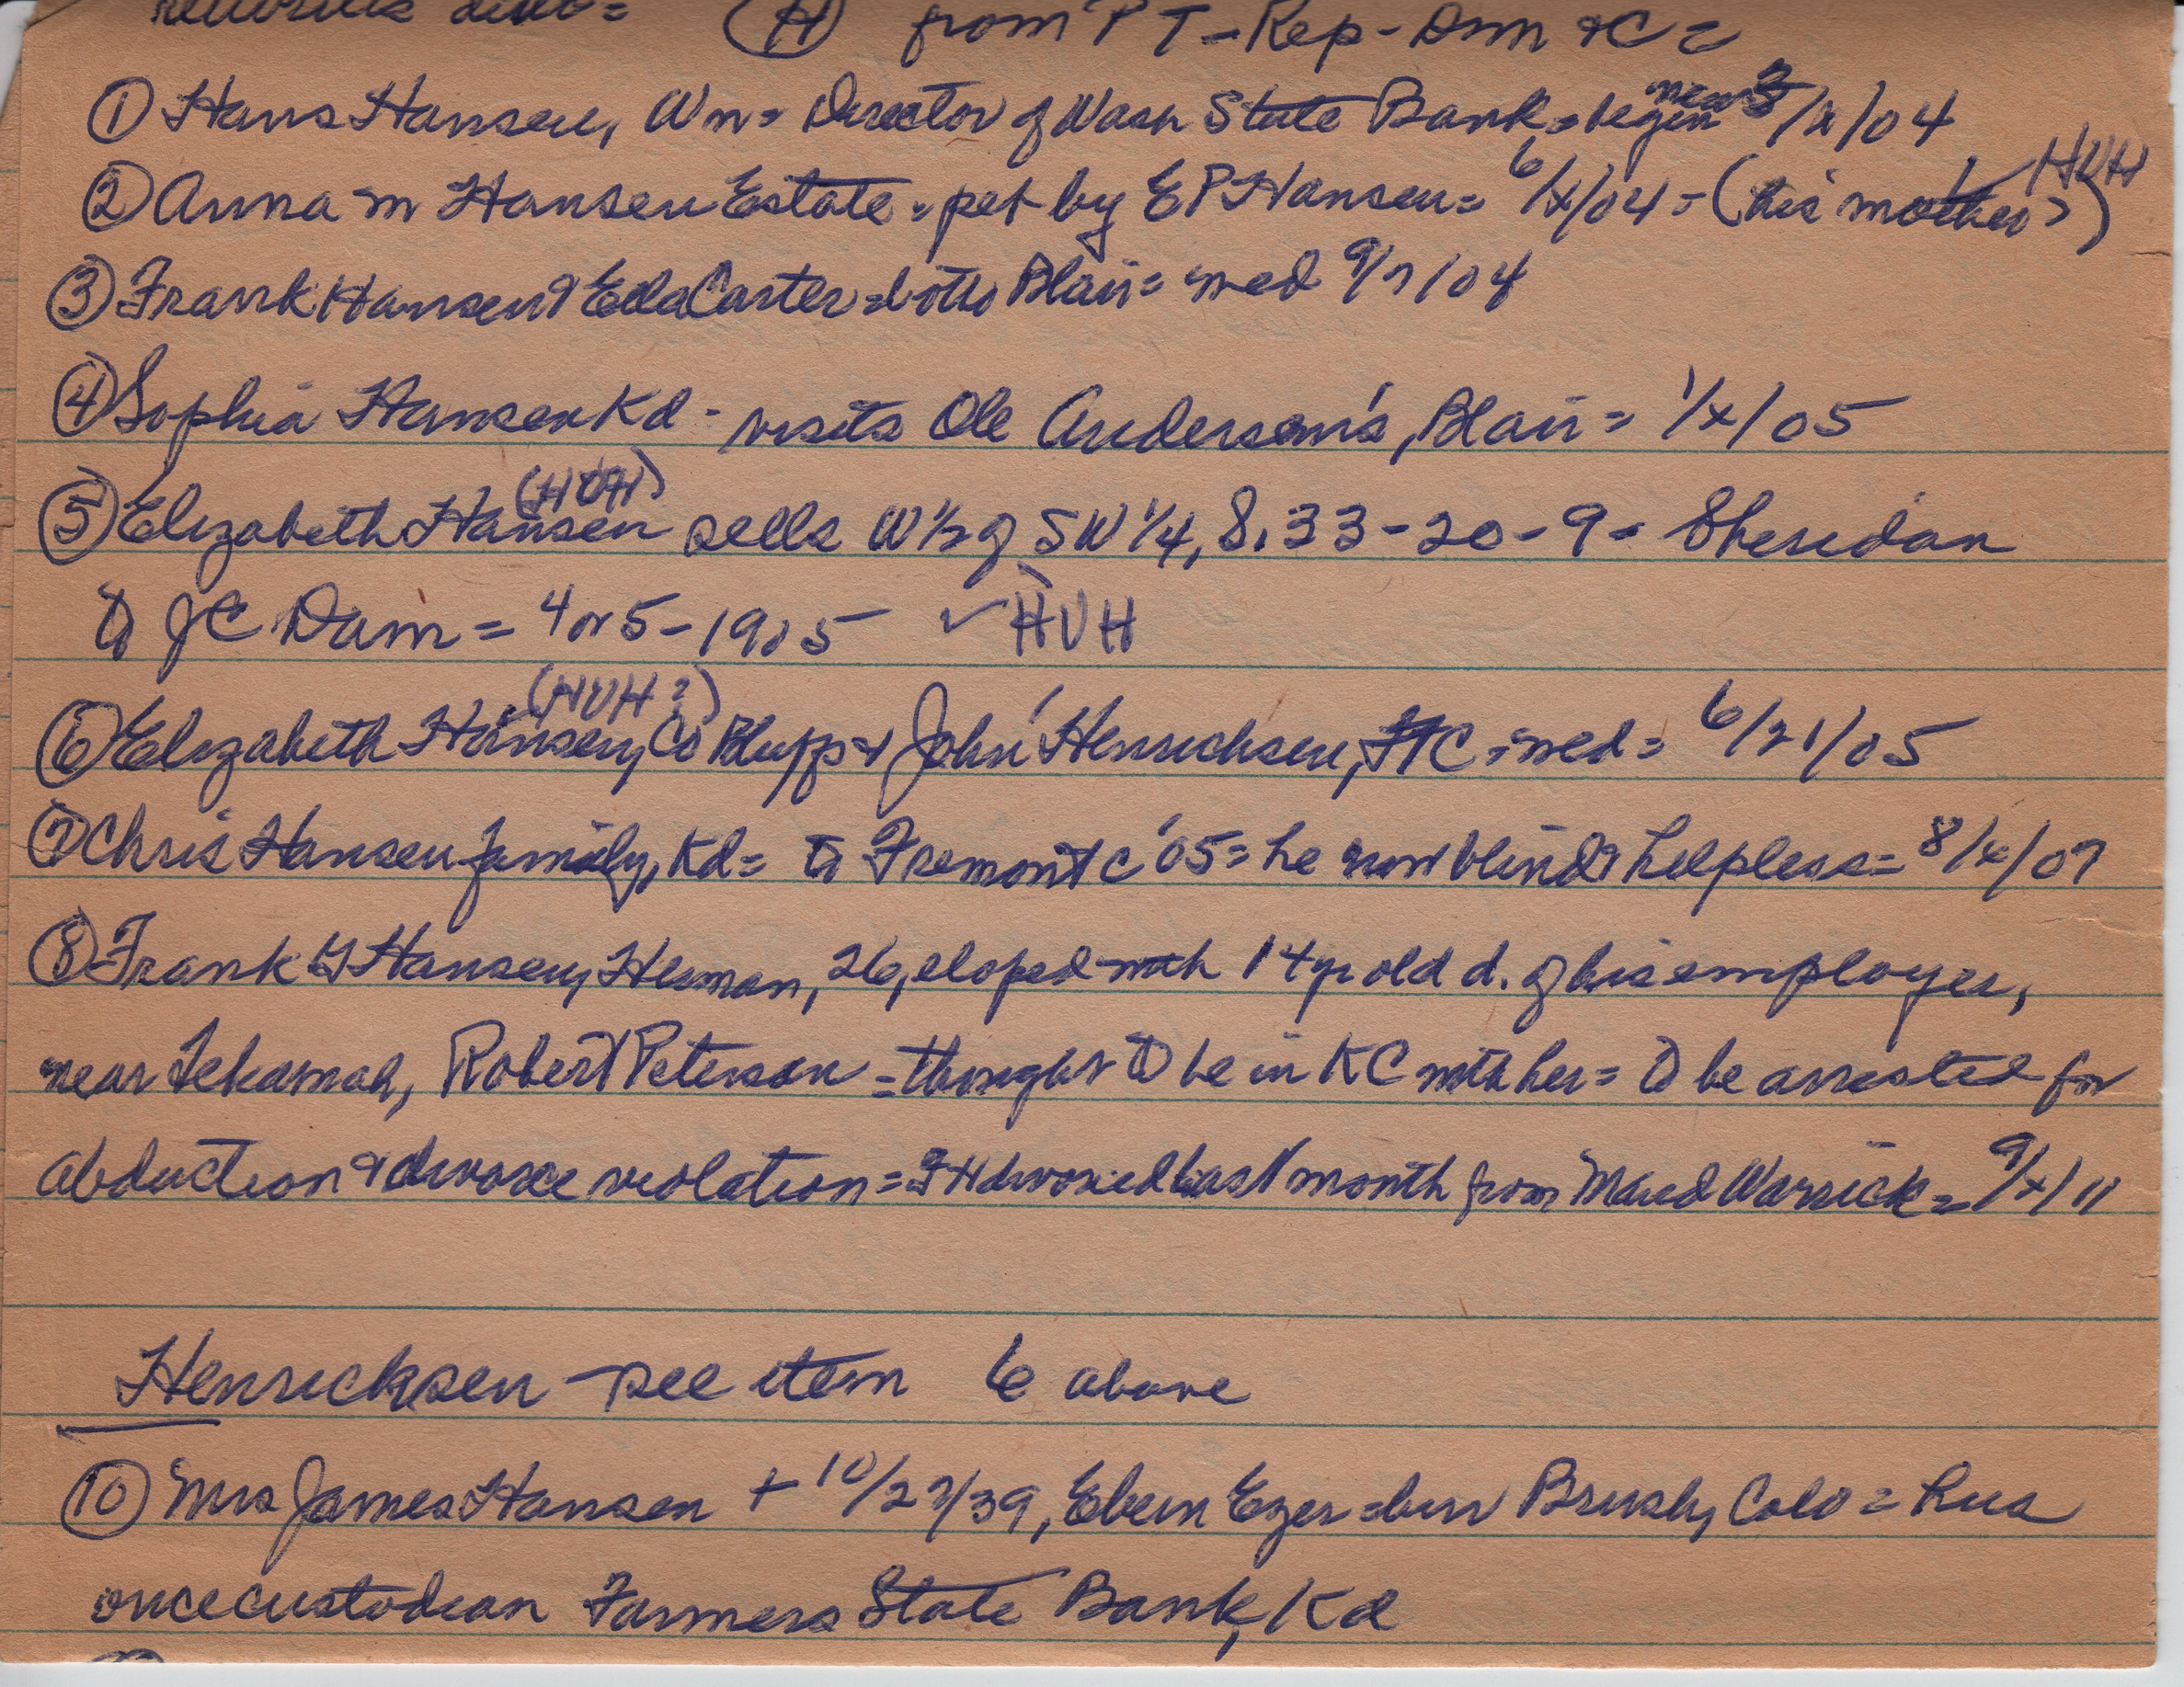 (H) from PT-Rep-Dem + C =
① Hans Hansen, Wn= Director of Wash State Bank= begin new 3/x/04
② Anna M Hansen Estate = pet by E P Hansen= 6/x/04 = (his mother?) ✓ HVH
③ Frank Hansen & Ella Carter = both Blair= med 9/7/04
④ Sophia Hansen Kd - visits Ole Anderson's, Blair= 1/x/05
⑤ Elizabeth Hansen (HVH) sells W 1/2 of SW 1/4, S. 33-20-9= Sheridan
to JC Dam= 4 or 5-1905 ✓ HVH
⑥ Elizabeth Hansen, (HVH?) Co Bluffs & John Henrichsen, FtC = med= 6/21/05
⑦ Chris Hansen family, Kd= to Fremont c '05= he now blind & helpless= 8/x/07
⑧ Frank G Hansen, Herman, 26, eloped with 14 yr old d. of his employer,
near Tekamah, Robert Peterson = thought to be in KC with her= to be arrested for
abduction & divorce violation= FH divorced last month from Maud Warrick= 9/x/11
Henricksen - see item 6 above
⑩ Mrs James Hansen + 10/27/39, Eben Ezer = bur Brush, Colo = hus
once custodian Farmers State Bank, Kd